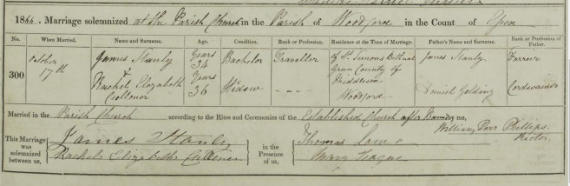 1866. Marriage solemnized at the Parish Church in the Parish of Woodford in the Count of Essex
No. When Married. Name and Surname. Age. Condition Rank or Profession. Residence at the Time of Marriage. Father's Name and Surname. Rank or Profession of Father.
300 October 17th James Stanly Years 34 Bachelor Traveller of St. Simons Bethnal Green County of Middlesex James Stanly Farrier
& Rachel Elizabeth Years 36 Widow - - - Woodford Daniel Golding Cordwainer
Married in the Parish Church according to the Rites and Ceremonies of the Established Church after Banns by me,
William Phillips
Rector.
This Marriage was solemnized between us, James Stanly
Rachel Elizabeth
in the Presence of us, Thomas
Mary Teague